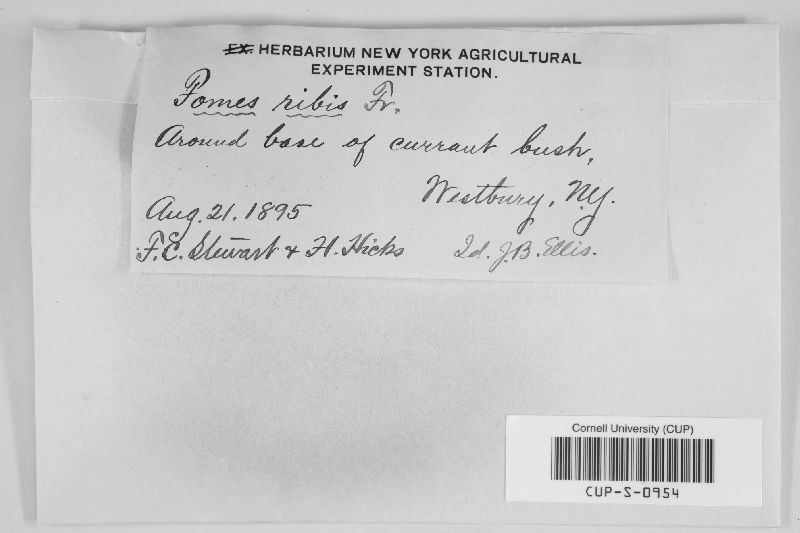 EX. HERBARIUM NEW YORK AGRICULTURAL
EXPERIMENT STATION.
Fomes ribis Fr.
Around base of currant bush,
Westbury, N.Y.
Aug. 21. 1895
F.C. Stewart & H. Hicks Id. J.B. Ellis.
Cornell University (CUP)
CUP-S-0954